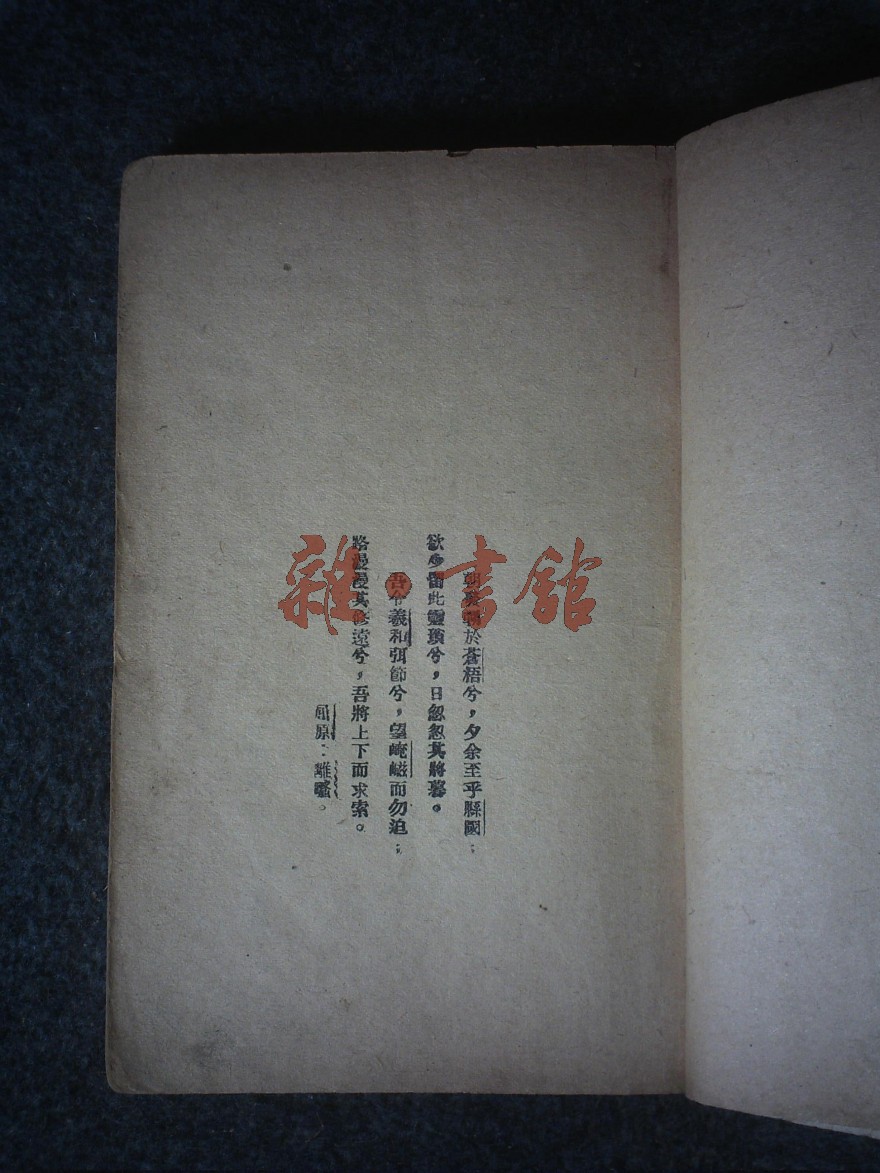 朝發軔於蒼梧兮，夕余至乎縣圃；
欲少留此靈瑣兮，日忽忽其將暮。
吾令羲和弭節兮，望崦嵫而勿迫；
路漫漫其修遠兮，吾將上下而求索。
屈原：離騷。
雜·書館